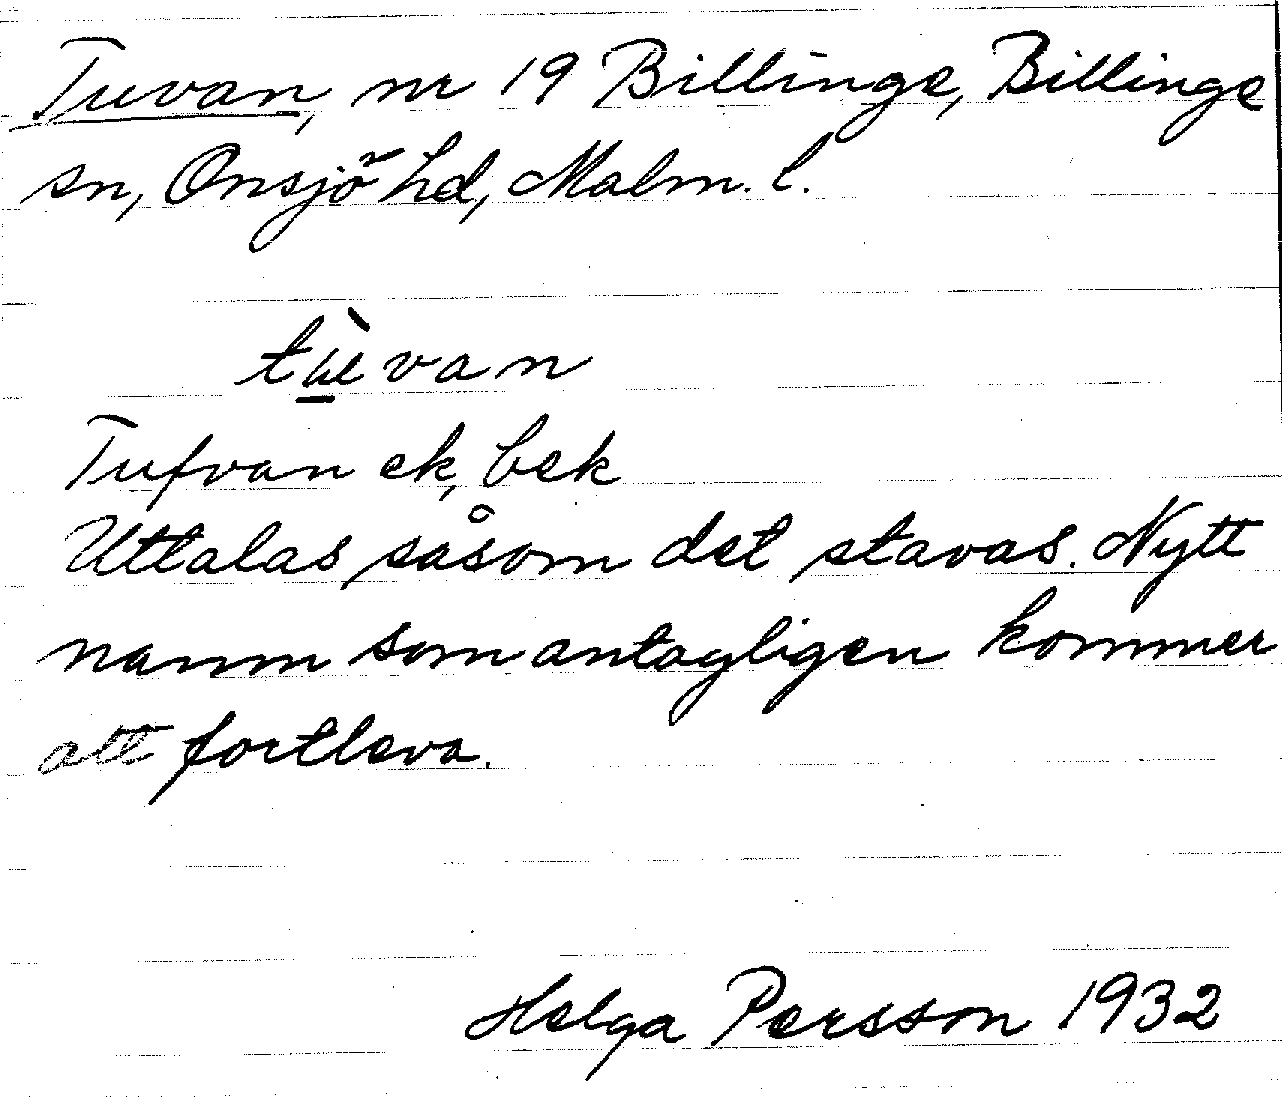 Tuvan, nr 19 Billinge, Billinge
sn, Onsjö hd, Malm. l.
tùvan
Tufvan ek, bek
Uttalas såsom det stavas. Nytt
namn som antagligen kommer
att fortleva.
Helga Persson 1932